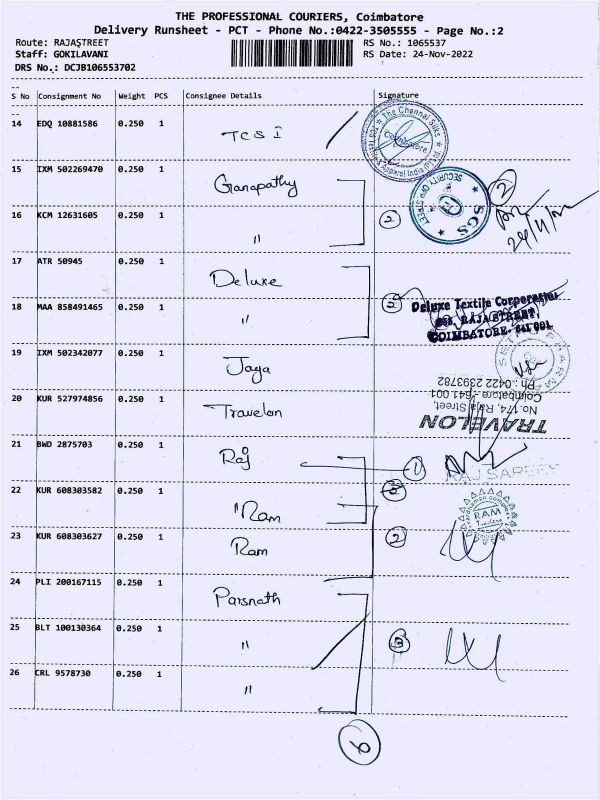 THE PROFESSIONAL COURIERS, Coimbatore
Delivery Runsheet - PCT - Phone No.:0422-3505555 - Page No.:2
Route: RAJASTREET RS No.: 1065537
Staff: GOKILAVANI RS Date: 24-Nov-2022
DRS No.: DCJB106553702
S No Consignment No Weight PCS Consignee Details Signature
14 EDQ 10881586 0.250 1 TCS I
The Chennai Silks
Coimbatore
Apparel India (P) Ltd
15 IXM 502269470 0.250 1 Ganapathy
SECURITY OPP STREET
SGS
2
24/11/22
16 KCM 12631605 0.250 1 "
2
17 ATR 50945 0.250 1 Deluxe
18 MAA 858491465 0.250 1 "
2
Deluxe Textile Corporation
RAJA STREET
COIMBATORE- 641 001
19 IXM 502342077 0.250 1 Jaya
20 KUR 527974856 0.250 1 Travelon
TRAVELON
No.174, Raja Street,
Coimbatore - 641 001
Ph : 0422 2393782
21 BWD 2875703 0.250 1 Raj
1
RAJ SAREES
22 KUR 608303582 0.250 1 "Ram
RAM
23 KUR 608303627 0.250 1 Ram
2
24 PLI 200167115 0.250 1 Parsnath
25 BLT 100130364 0.250 1 "
3
26 CRL 9578730 0.250 1 "
6